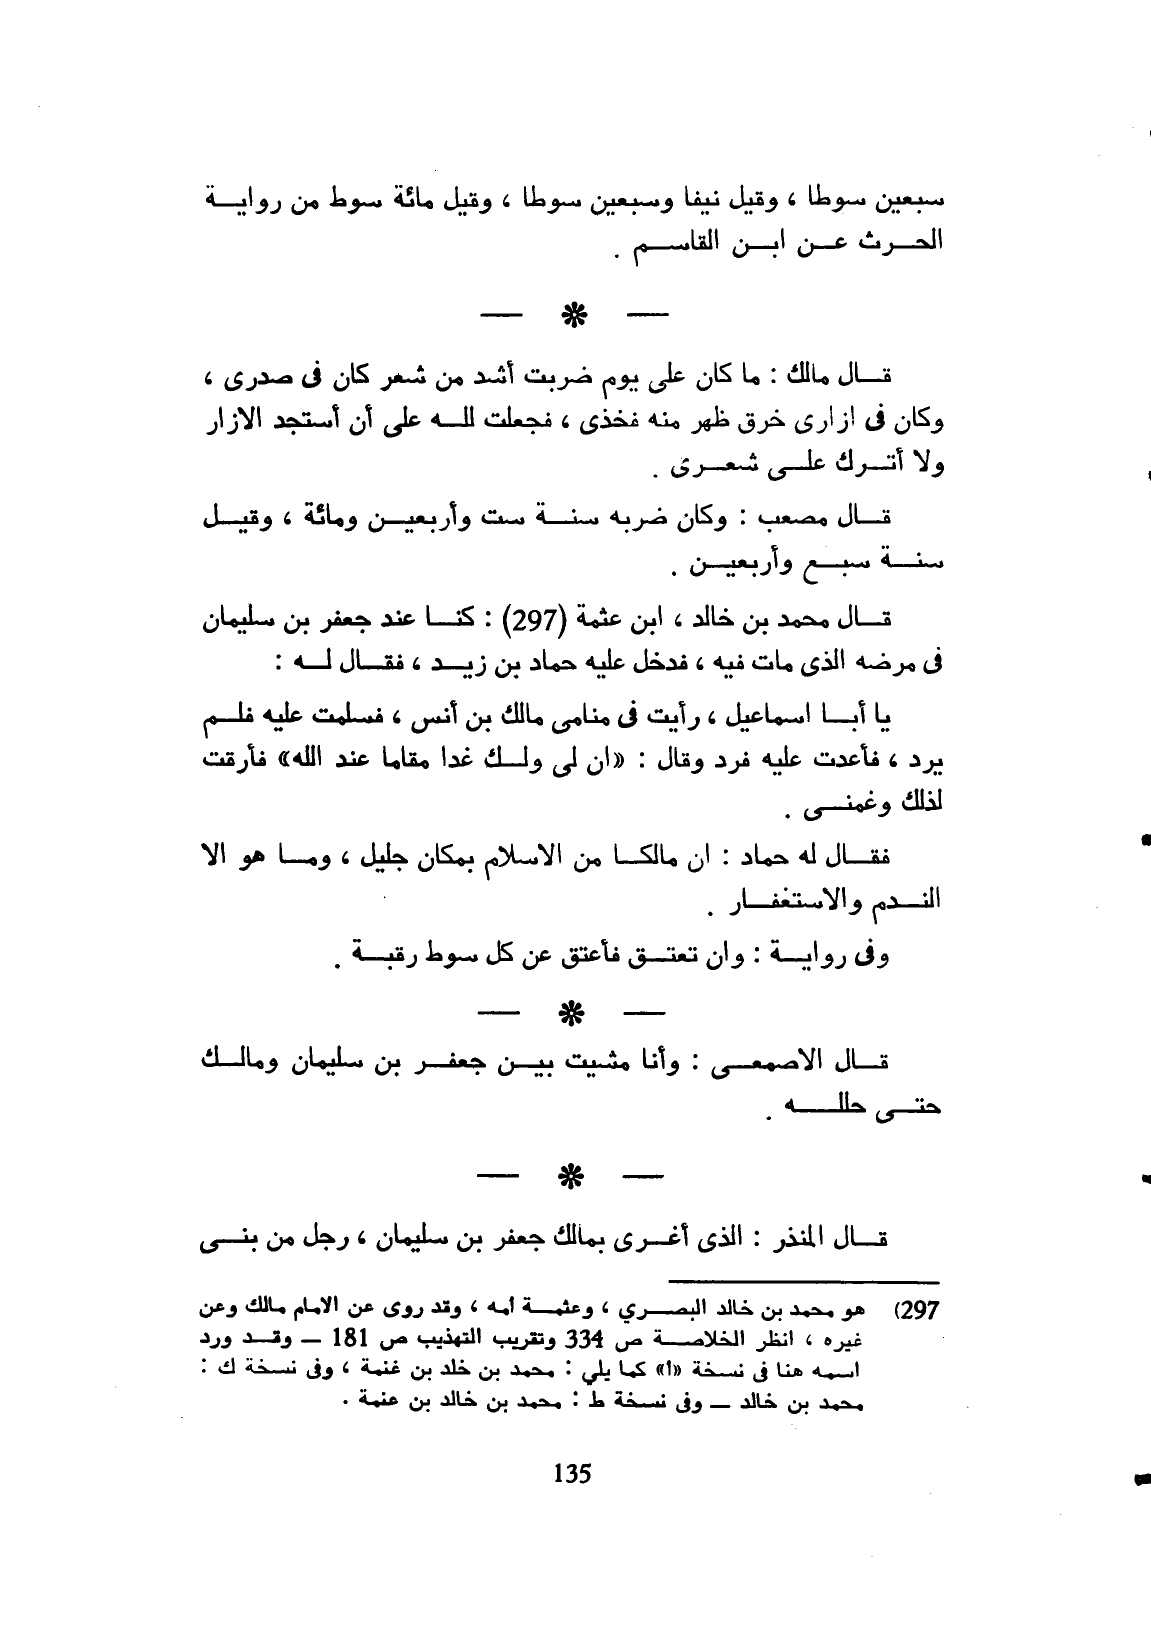 سبعين سوطا ، وقيل نيفا وسبعين سوطا ، وقيل مائة سوط من رواية
الحرث عن ابن القاسم .
— * —
قال مالك : ما كان علي يوم ضربت أشد من شعر كان فى صدرى ،
وكان فى ازارى خرق ظهر منه فخذى ، فجعلت لله على أن أستجد الازار
ولا أترك على شعرى .
قال مصعب : وكان ضربه سنة ست وأربعين ومائة ، وقيل
سنة سبع وأربعين .
قال محمد بن خالد ، ابن عثمة (297) : كنا عند جعفر بن سليمان
فى مرضه الذى مات فيه ، فدخل عليه حماد بن زيد ، فقال له :
يا أبا اسماعيل ، رأيت فى منامى مالك بن أنس ، فسلمت عليه فلم
يرد ، فأعدت عليه فرد وقال : «ان لى ولك غدا مقاما عند الله» فأرقت
لذلك وغمنى .
فقال له حماد : ان مالكا من الاسلام بمكان جليل ، وما هو الا
الندم والاستغفار .
وفى رواية : وان تعتق فأعتق عن كل سوط رقبة .
— * —
قال الاصمعى : وأنا مشيت بين جعفر بن سليمان ومالك
حتى حالله .
— * —
قال المنذر : الذى أغرى بمالك جعفر بن سليمان ، رجل من بنى
297) هو محمد بن خالد البصري ، وعثمة امه ، وقد روى عن الامام مالك وعن
غيره ، انظر الخلاصة ص 334 وتقريب التهذيب ص 181 — وقد ورد
اسمه هنا فى نسخة «ا» كما يلي : محمد بن خلد بن غنمة ، وفى نسخة ك :
محمد بن خالد — وفى نسخة ط : محمد بن خالد بن عنمة .
135